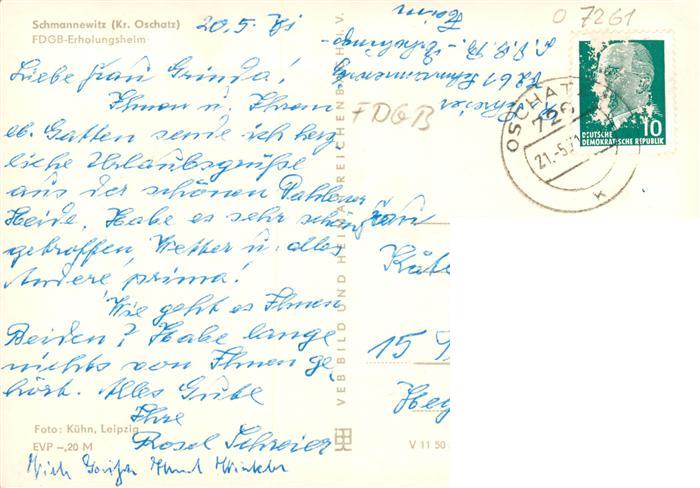 Schmannewitz (Kr. Oschatz)
FDGB-Erholungsheim
20.5.71
Liebe Frau Grinda!
Ihnen u. Ihrem
lb. Gatten sende ich herz
liche Urlaubsgrüße
aus der schönen Dahlener
Heide. Habe es sehr schön
getroffen, Wetter u. alles
Andere prima!
Wie geht es Ihnen
Beiden? Habe lange
nichts von Ihnen ge,
hört. Alles Gute
Ihre
Rosel Schreier
Foto: Kühn, Leipzig
EVP -,20 M
VEB BILD UND HEIMAT REICHENBACH I. V.
V 11 50
R. Schreier
7261 Schmannewitz
Heim
FDGB
0 7261
OSCHATZ
21.-5.71
10
DEUTSCHE
DEMOKRATISCHE REPUBLIK
Frau
Käte
15